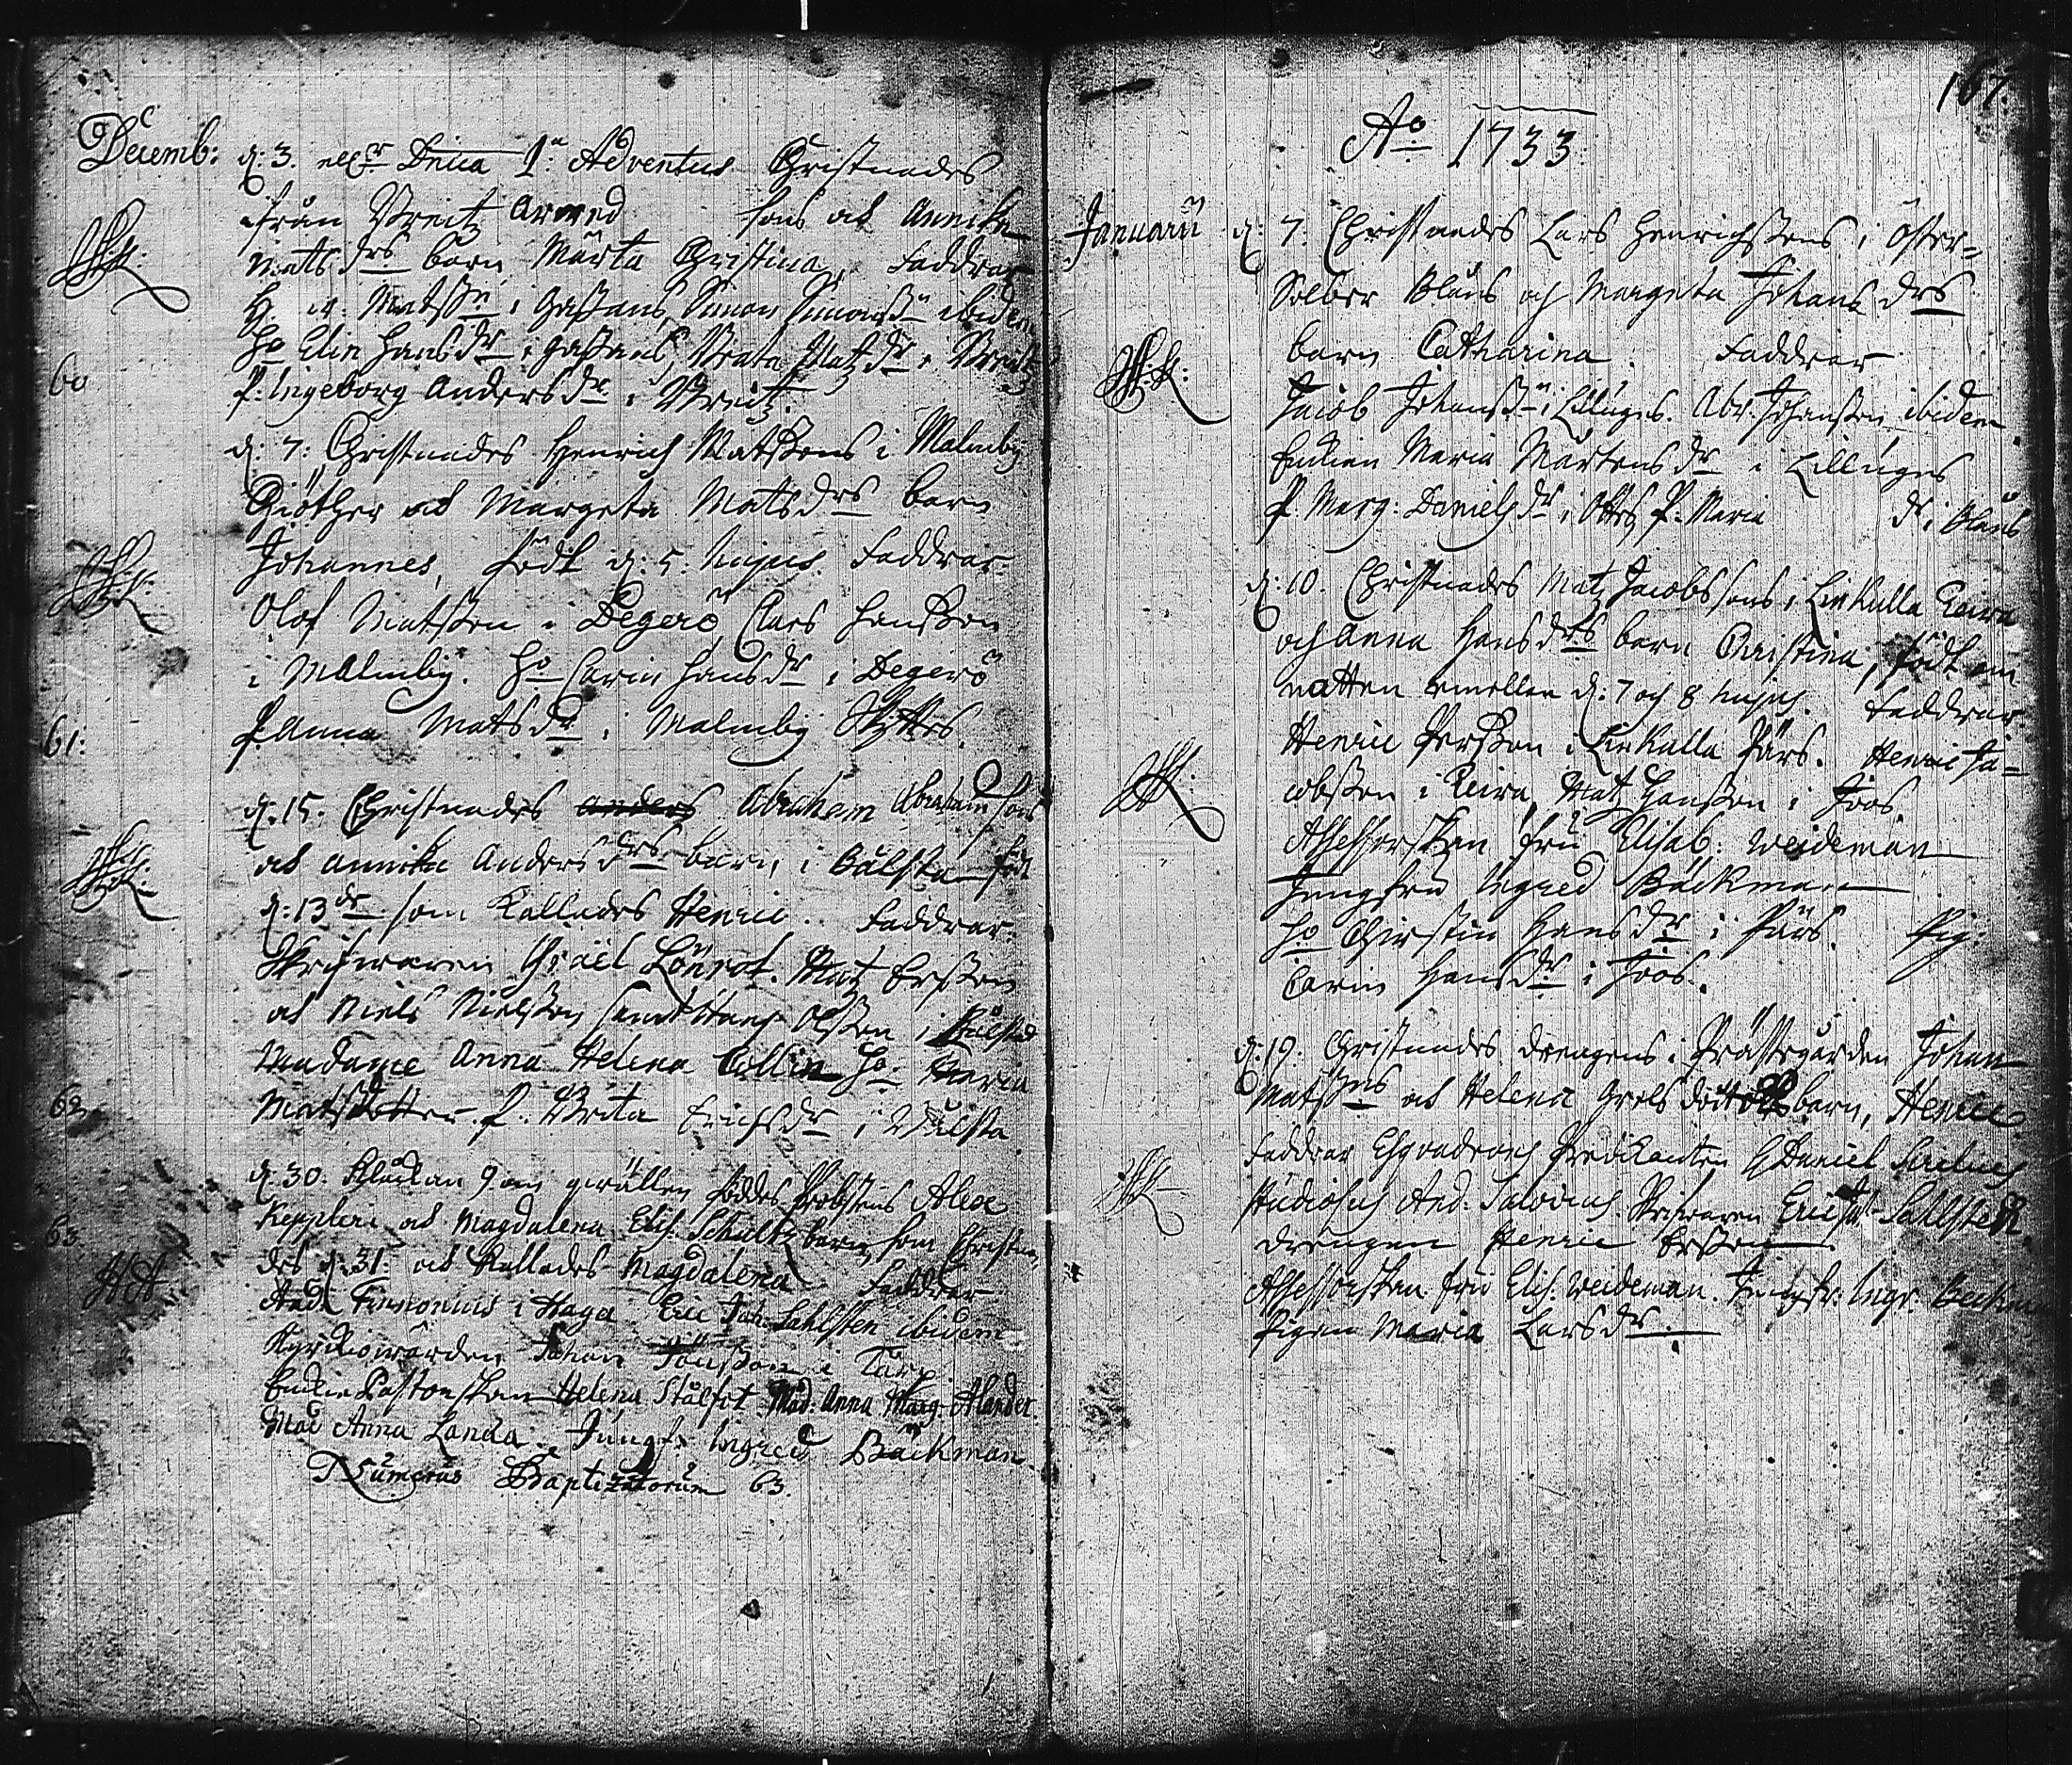 Decemb: d. 3. Dnica 1.a Adventus Christnades
från Breitz Arwed sons ok Annika
Mats drs barn Märta Christina, Faddrar
H. Matss:n i Gassans, Simon Simonss:n ibidem
60 Ho Elin Hansdr i Gassans, Brata Matzdr i Breitz
P. Ingeborg Andersdr i Breitz.
d. 7: Christnades Henrich Matssons i Malmby
Giöther ok Margeta Matsdrs barn
Johannes, född d. 5. hujus. Faddrar
Olof Matsson i Degerö, Claes Hansson
i Malmby. Ho Carin Hansdr i Degerö
61: P. Anna Matsdr i Malmby
d. 15. Christnades Anders Abraham Abrahamsons
ok Annika Andersdrs barn, i Bålsta föd
d: 13 som kallades Henric. Faddrar
Skrifwaren Lönrot. Matz Ersson
ok Niels Nielsson samt Hans Olsson i Bålsta
Madame Anna Helena Collin Ho Maria
62 Matsdotter. P. Brita Erichsdr i Bålsta
d. 30. Klåckan 9 om qwällen föddes Probstens Alex
63 Keppleri ok Magdalena Elis. Schultz barn, som Christna-
des d. 31. ok kallades Magdalena Faddrar
And. Finnonius i Haga Eric Joh. Sahlsten ibidem
Kyrckiowärden Johan Jönsson i Tärp
Enckie Pastorskan Helena Stålfot Mad. Anna Marg. Alander.
Mad Anna Landa. Jungfr Ingred Bäckman.
Numerus Baptizatorum 63.
167.
Ao 1733
Januarii d. 7. Christnades Lars Henrichssons i Öster-
Solber Klåus och Margeta Johans drs
barn Catharina. Faddrar
Jacob Johanss:n i Lilluges. Abr. Johansson ibidem
Enckien Maria Mårtensdr i Lilluges
P. Marg: Danielsdr i Otters P. Maria dr i Klåus
d. 10. Christnades Matz Jacobssons i Linkulla Reira
och Anna Hansdrs barn Christina, född om
natten emellan d: 7 och 8 hujus. Faddrar
Henric Persson i Linkulla Pärs. Henric Ja-
cobsson i Reira, Matz Hansson i Joos
Assessorskan fru Elisab: Weideman
Jungfru Ingred Bäckman
Ho Christin Hansdr i Pärs. Pig:
Carin Hansdr i Joos.
d. 19. Christnades drengens i Prästegården Johan
Matss:ns ok Helena Grels dotters barn, Henric
Faddrar Esquadrons Predikanten H Daniel
Studiosus And. Salovius. Skrifwaren Eric Joh. Sahlsten.
drengen Henric Ersson
Assessorskan fru Elis. Weideman. Jungfr. Ingr. Beckman
Pigan Maria Larsdr.